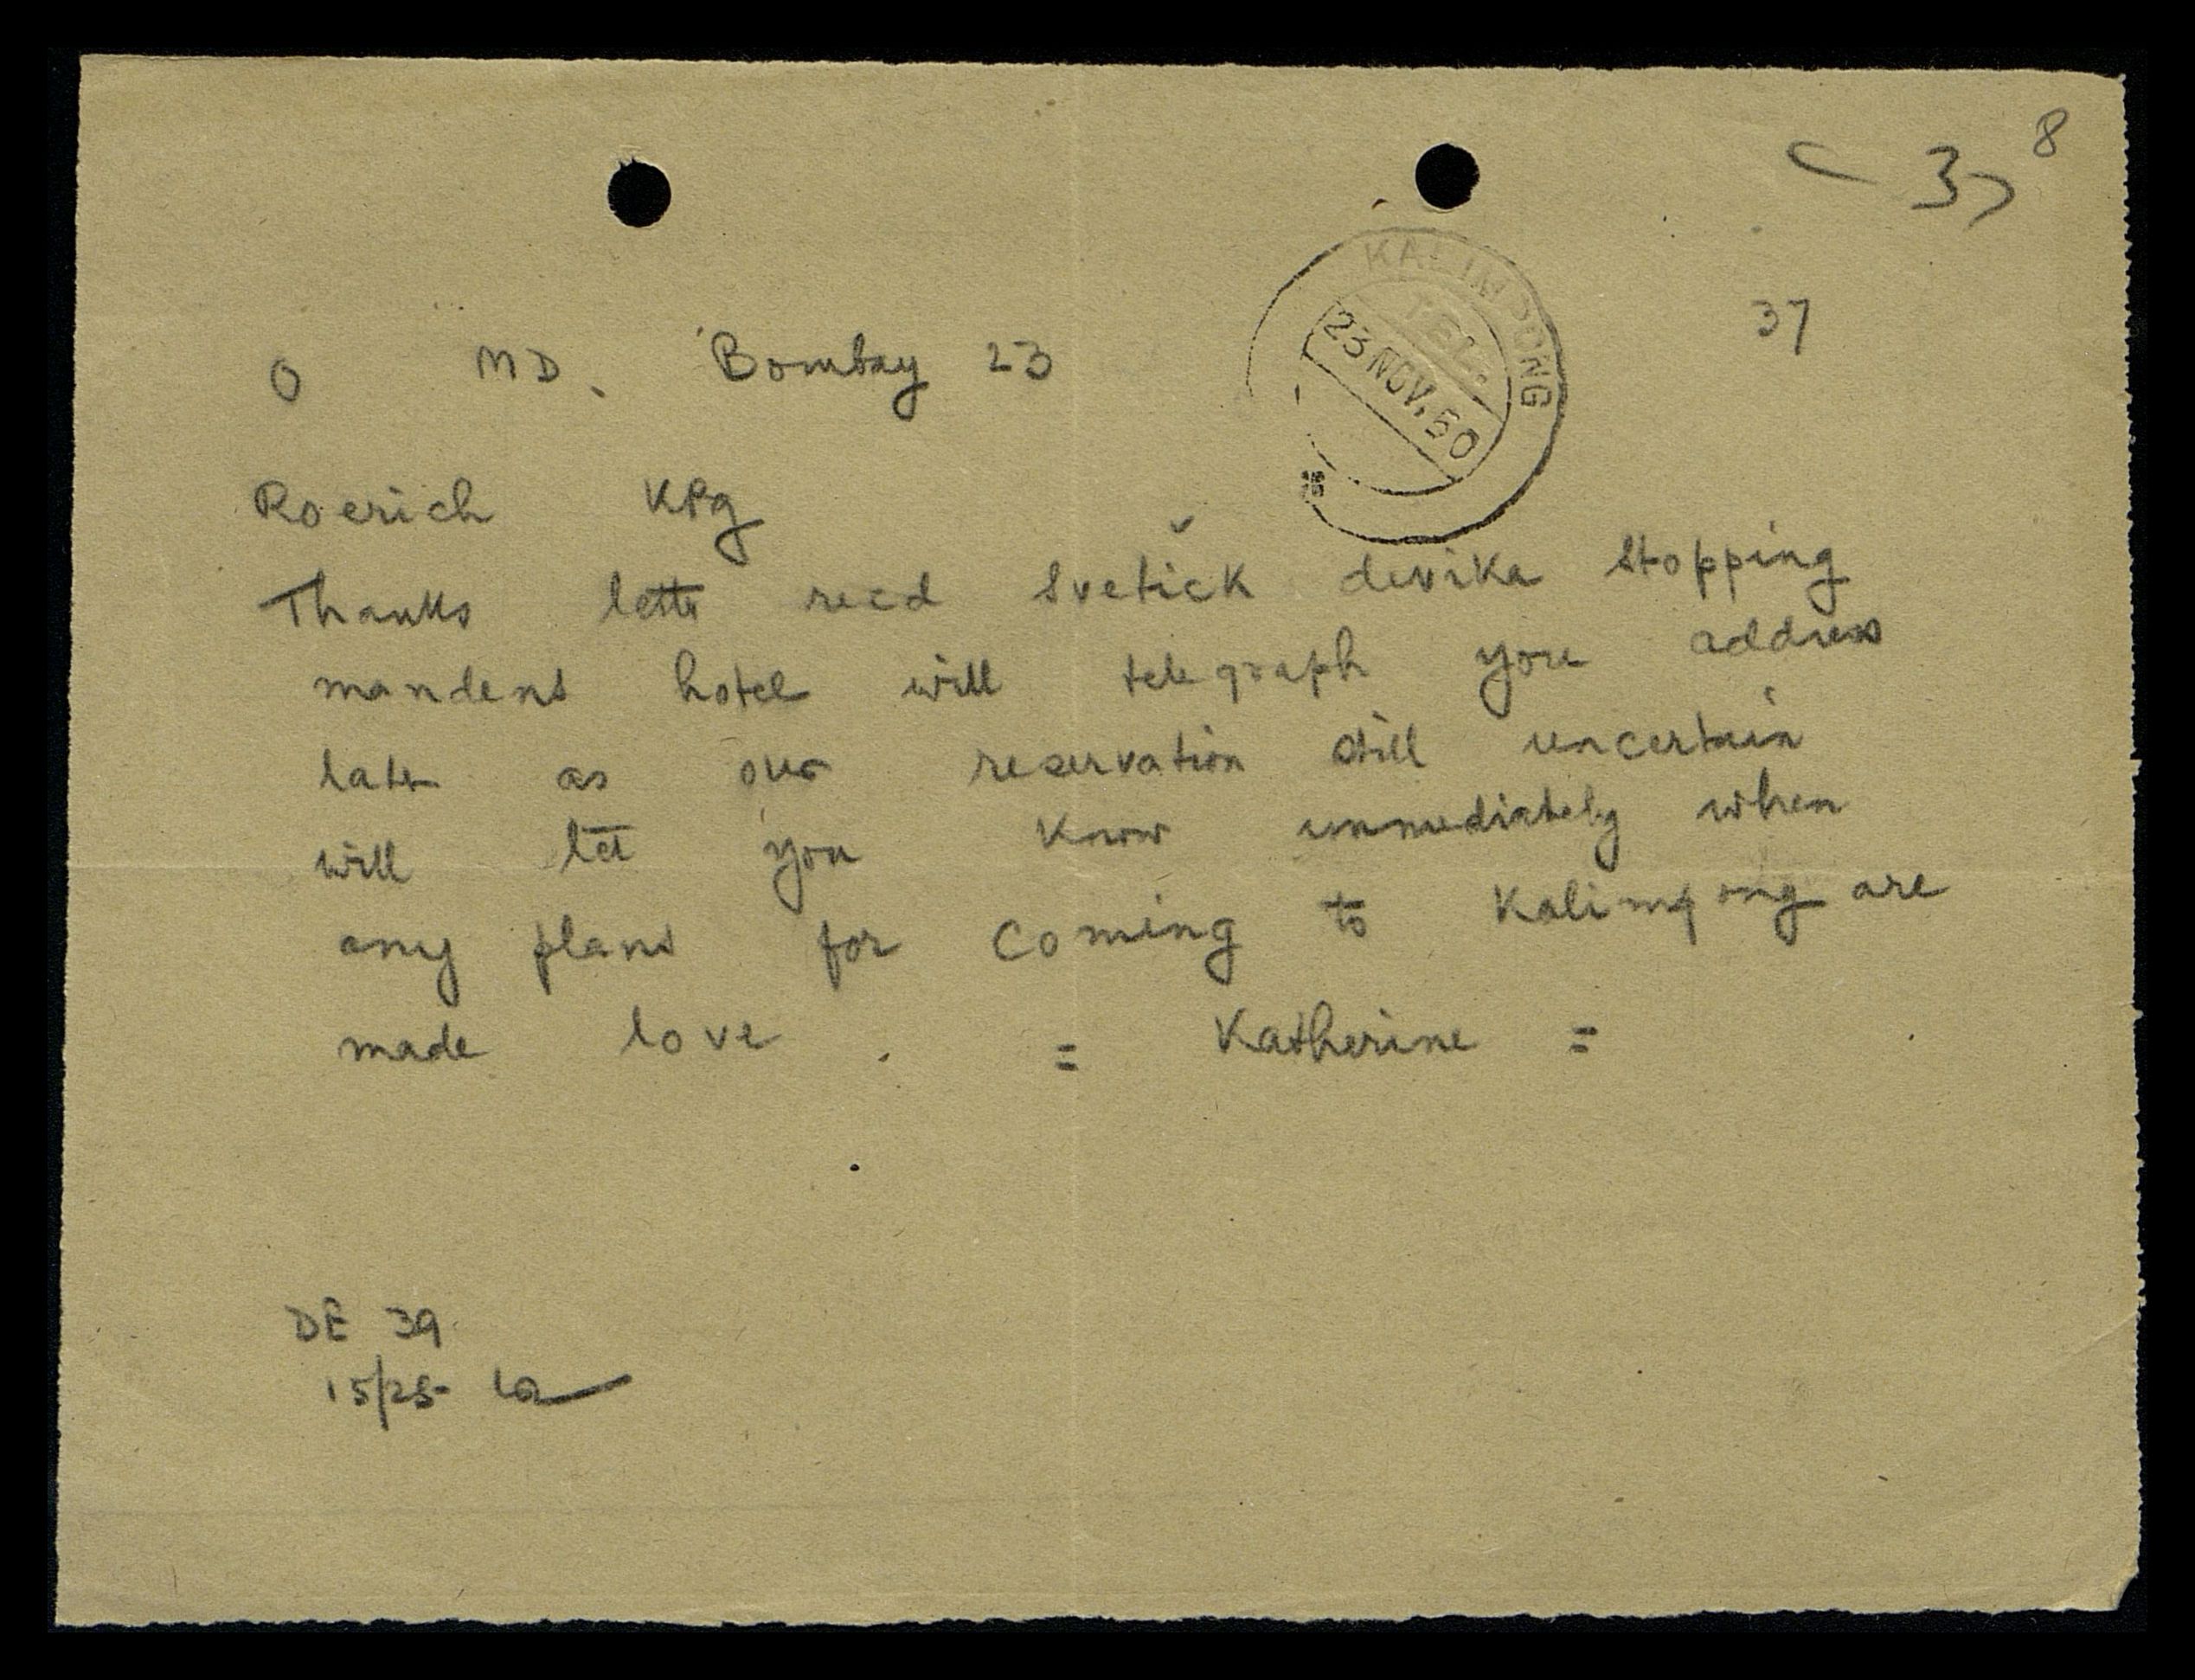 8
37
37
O MD. Bombay 23
KALIMPONG
TEL.
23 NOV. 50
Roerich KPg
Thanks lettr recd Svetick devika stopping
mandens hotel will telegraph you address
later as our reservation still uncertain
will let you know immediately when
any plans for coming to Kalimpong are
made love . = Katherine =
DE 39
15/25